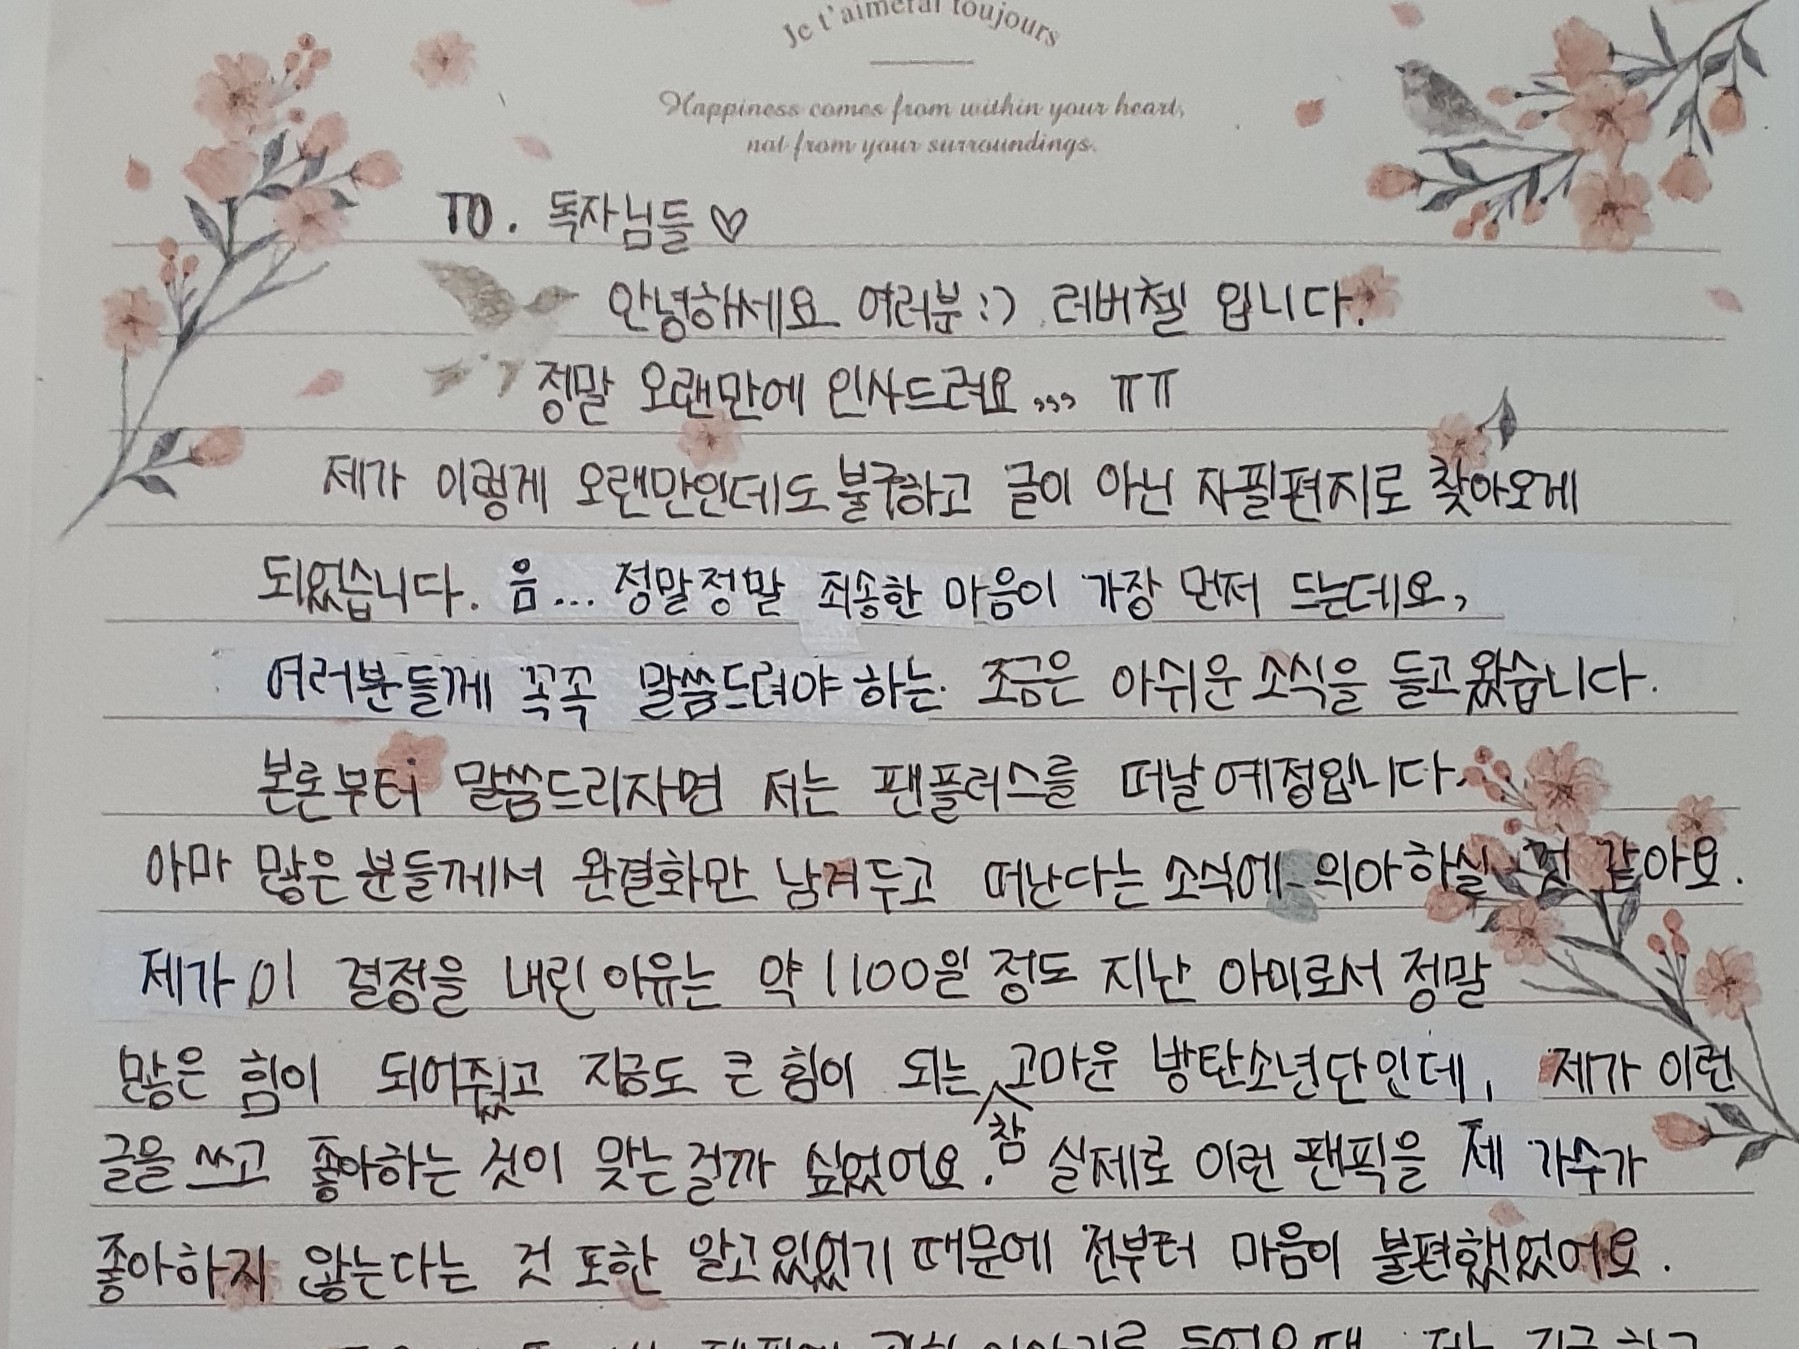 Je t'aimerai toujours
Happiness comes from within your heart,
not from your surroundings.
TO. 독자님들 ♡
안녕하세요 여러분:) 러버첼 입니다.
정말 오랜만에 인사드려요,,, ㅠㅠ
제가 이렇게 오랜만인데도 불구하고 글이 아닌 자필편지로 찾아오게
되었습니다. 음... 정말정말 죄송한 마음이 가장 먼저 드는데요,
여러분들께 꼭꼭 말씀드려야 하는 조금은 아쉬운 소식을 들고왔습니다.
본론부터 말씀드리자면 저는 팬플러스를 떠날 예정입니다.
아마 많은 분들께서 완결화만 남겨두고 떠난다는 소식에 의아하실 것 같아요.
제가 이 결정을 내린 이유는 약 1100일 정도 지난 아미로서 정말
많은 힘이 되어줬고 지금도 큰 힘이 되는 참 고마운 방탄소년단인데, 제가 이런
글을 쓰고 좋아하는 것이 맞는걸까 싶었어요. 실제로 이런 팬픽을 제 가수가
좋아하지 않는다는 것 또한 알고있었기 때문에 전부터 마음이 불편했었어요.